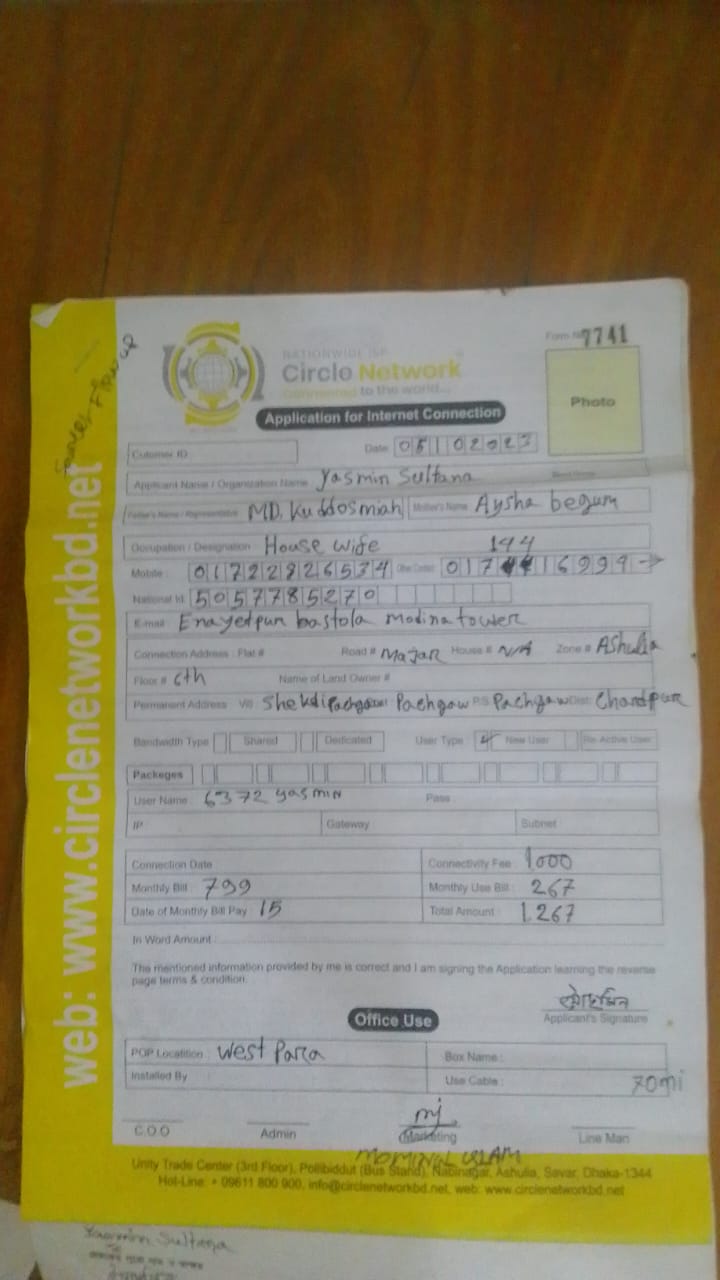 Form No 7741
NATIONWIDE ISP
Circle Network
Connected to the world...
Photo
Application for Internet Connection
Cutomer ID
Date: 05102023
Applicant Name / Organization Name Yasmin Sultana
Father's Name / Representative MD. Kuddosmiah Mother's Name Aysha begum
Occupation / Designation House wife 144
Mobile: 01722826534 Other Contact 017 16999
National Id 5057785270
E-mail Enayetpur bastola modina tower
Connection Address : Flat # Road # Majar House # N/A Zone # AShulia
Floor # 6th Name of Land Owner #
Permanent Address Vill Shekdi Pachgaw P.S Pachgaw Dist. Chandpur
Bandwidth Type Shared Dedicated User Type : New User Re-Active User
Packeges
User Name : 6372 yasmin Pass :
IP Gateway Subnet
Connection Date Connectivity Fee 1000
Monthly Bill : 799 Monthly Use Bill : 267
Date of Monthly Bill Pay 15 Total Amount : 1,267
In Word Amount :
The mentioned information provided by me is correct and I am signing the Application learning the reverse
page terms & condition.
Applicant's Signature
Office Use
POP Locatition : West Para Box Name :
Installed By Use Cable : 70mi
C.O.O Admin Marketing Line Man
MOMINUL ISLAM
Unity Trade Center (3rd Floor), Pollibiddut (Bus Stand), Nabinagar, Ashulia, Savar, Dhaka-1344
Hot-Line: + 09611 800 900, info@circlenetworkbd.net, web: www.circlenetworkbd.net
web: www.circlenetworkbd.net
Yasmin Sultana